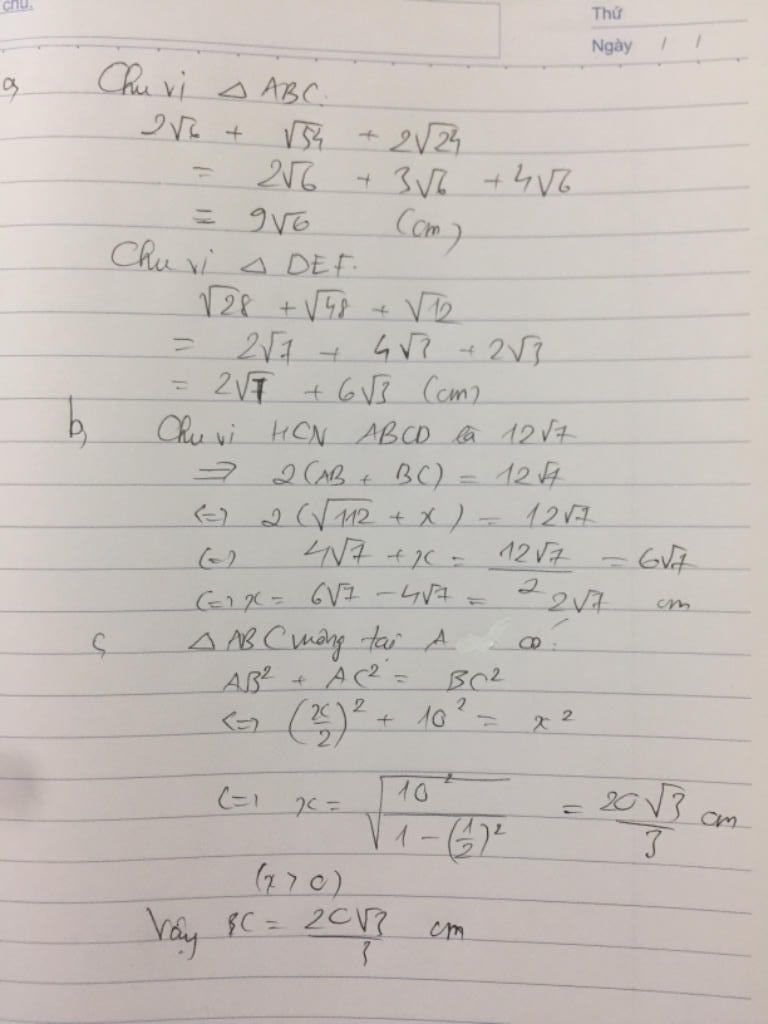 chủ.
Thứ
Ngày / /
a, Chu vi △ ABC.
2√6 + √54 + 2√24
= 2√6 + 3√6 + 4√6
= 9√6 (cm)
Chu vi △ DEF.
√28 + √48 + √12
= 2√7 + 4√3 + 2√3
= 2√7 + 6√3 (cm)
b, Chu vi HCN ABCD là 12√7
=> 2(AB + BC) = 12√7
<=> 2(√112 + x) = 12√7
<=> 4√7 + x = 12√7/2 = 6√7
<=> x = 6√7 - 4√7 = 2√7 cm
c, △ ABC vuông tại A có:
AB² + AC² = BC²
<=> (x/2)² + 10² = x²
<=> x = √(10²/(1 - (1/2)²)) = 20√3/3 cm
(x > 0)
Vậy BC = 20√3/3 cm